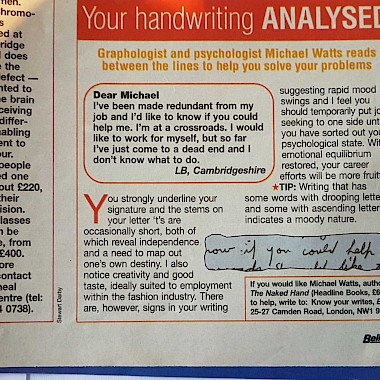 men.
chromo-
s
ed at
bridge
l does
e the
defect —
nted to
e brain
ceiving
differ-
abling
ent to
our.
people
ed one
out £220,
their
ision.
lasses
n be
e, from
£400.
ore
contact
neal
entre (tel:
4 0738).
Stewart Darby
Your handwriting ANALYSED
Graphologist and psychologist Michael Watts reads
between the lines to help you solve your problems
Dear Michael
I've been made redundant from my
job and I'd like to know if you could
help me. I'm at a crossroads. I would
like to work for myself, but so far
I've just come to a dead end and I
don't know what to do.
LB, Cambridgeshire
You strongly underline your
signature and the stems on
your letter 't's are
occasionally short, both of
which reveal independence
and a need to map out
one's own destiny. I also
notice creativity and good
taste, ideally suited to employment
within the fashion industry. There
are, however, signs in your writing
suggesting rapid mood
swings and I feel you
should temporarily put jo
seeking to one side unt
you have sorted out yo
psychological state. Wit
emotional equilibrium
restored, your career
efforts will be more fruitf
★TIP: Writing that has
some words with drooping lette
and some with ascending letter
indicates a moody nature.
now if you could help
like
If you would like Michael Watts, autho
The Naked Hand (Headline Books, £6
to help, write to: Know your writes, B
25-27 Camden Road, London, NW1 9
Bell